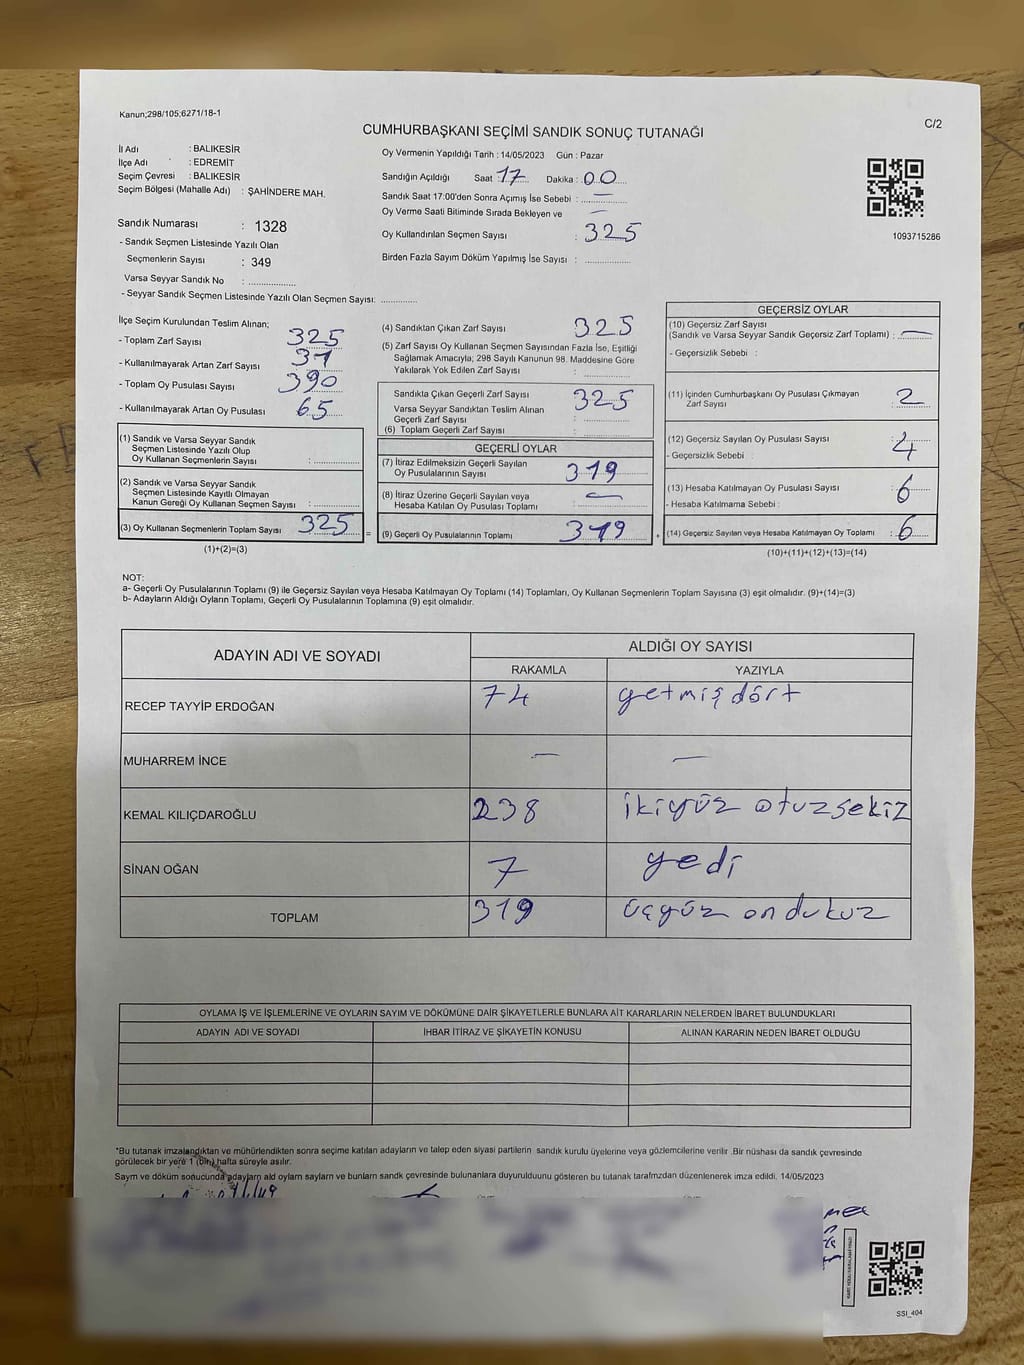 Kanun;298/105;6271/18-1
C/2
CUMHURBAŞKANI SEÇİMİ SANDIK SONUÇ TUTANAĞI
İl Adı : BALIKESİR
İlçe Adı : EDREMİT
Seçim Çevresi : BALIKESİR
Seçim Bölgesi (Mahalle Adı) : ŞAHİNDERE MAH.
Sandık Numarası : 1328
- Sandık Seçmen Listesinde Yazılı Olan
Seçmenlerin Sayısı : 349
Varsa Seyyar Sandık No :
- Seyyar Sandık Seçmen Listesinde Yazılı Olan Seçmen Sayısı:
Oy Vermenin Yapıldığı Tarih : 14/05/2023 Gün : Pazar
Sandığın Açıldığı Saat : 17 Dakika : 00
Sandık Saat 17:00'den Sonra Açımış İse Sebebi : —
Oy Verme Saati Bitiminde Sırada Bekleyen ve —
Oy Kullandırılan Seçmen Sayısı : 325
Birden Fazla Sayım Döküm Yapılmış İse Sayısı :
1093715286
İlçe Seçim Kurulundan Teslim Alınan;
- Toplam Zarf Sayısı 325
- Kullanılmayarak Artan Zarf Sayısı 31
- Toplam Oy Pusulası Sayısı 390
- Kullanılmayarak Artan Oy Pusulası 65
(1) Sandık ve Varsa Seyyar Sandık
Seçmen Listesinde Yazılı Olup
Oy Kullanan Seçmenlerin Sayısı :
(2) Sandık ve Varsa Seyyar Sandık
Seçmen Listesinde Kayıtlı Olmayan
Kanun Gereği Oy Kullanan Seçmen Sayısı :
(3) Oy Kullanan Seçmenlerin Toplam Sayısı 325
(1)+(2)=(3)
(4) Sandıktan Çıkan Zarf Sayısı 325
(5) Zarf Sayısı Oy Kullanan Seçmen Sayısından Fazla İse, Eşitliği
Sağlamak Amacıyla; 298 Sayılı Kanunun 98. Maddesine Göre
Yakılarak Yok Edilen Zarf Sayısı :
Sandıkta Çıkan Geçerli Zarf Sayısı 325
Varsa Seyyar Sandıktan Teslim Alınan
Geçerli Zarf Sayısı :
(6) Toplam Geçerli Zarf Sayısı :
GEÇERLİ OYLAR
(7) İtiraz Edilmeksizin Geçerli Sayılan
Oy Pusulalarının Sayısı 319
(8) İtiraz Üzerine Geçerli Sayılan veya
Hesaba Katılan Oy Pusulaları Toplamı —
= (9) Geçerli Oy Pusulalarının Toplamı 319 +
GEÇERSİZ OYLAR
(10) Geçersiz Zarf Sayısı
(Sandık ve Varsa Seyyar Sandık Geçersiz Zarf Toplamı) : —
- Geçersizlik Sebebi :
(11) İçinden Cumhurbaşkanı Oy Pusulası Çıkmayan
Zarf Sayısı : 2
(12) Geçersiz Sayılan Oy Pusulası Sayısı : 4
- Geçersizlik Sebebi :
(13) Hesaba Katılmayan Oy Pusulası Sayısı : 6
- Hesaba Katılmama Sebebi :
(14) Geçersiz Sayılan veya Hesaba Katılmayan Oy Toplamı : 6
(10)+(11)+(12)+(13)=(14)
NOT:
a- Geçerli Oy Pusulalarının Toplamı (9) ile Geçersiz Sayılan veya Hesaba Katılmayan Oy Toplamı (14) Toplamları, Oy Kullanan Seçmenlerin Toplam Sayısına (3) eşit olmalıdır. (9)+(14)=(3)
b- Adayların Aldığı Oyların Toplamı, Geçerli Oy Pusulalarının Toplamına (9) eşit olmalıdır.
ADAYIN ADI VE SOYADI
ALDIĞI OY SAYISI
RAKAMLA YAZIYLA
RECEP TAYYİP ERDOĞAN 74 yetmiş dört
MUHARREM İNCE — —
KEMAL KILIÇDAROĞLU 238 ikiyüz otuzsekiz
SİNAN OĞAN 7 yedi
TOPLAM 319 üçyüz ondukuz
OYLAMA İŞ VE İŞLEMLERİNE VE OYLARIN SAYIM VE DÖKÜMÜNE DAİR ŞİKAYETLERLE BUNLARA AİT KARARLARIN NELERDEN İBARET BULUNDUKLARI
ADAYIN ADI VE SOYADI İHBAR İTİRAZ VE ŞİKAYETİN KONUSU ALINAN KARARIN NEDEN İBARET OLDUĞU
*Bu tutanak imzalandıktan ve mühürlendikten sonra seçime katılan adayların ve talep eden siyasi partilerin sandık kurulu üyelerine veya gözlemcilerine verilir .Bir nüshası da sandık çevresinde
görülecek bir yere 1 (bir) hafta süreyle asılır.
Saym ve döküm sonucunda adayların ald oyların sayların ve bunların sandk çevresinde bulunanlara duyurulduunu gösteren bu tutanak tarafmzdan düzenlenerek imza edildi. 14/05/2023
SSI_404